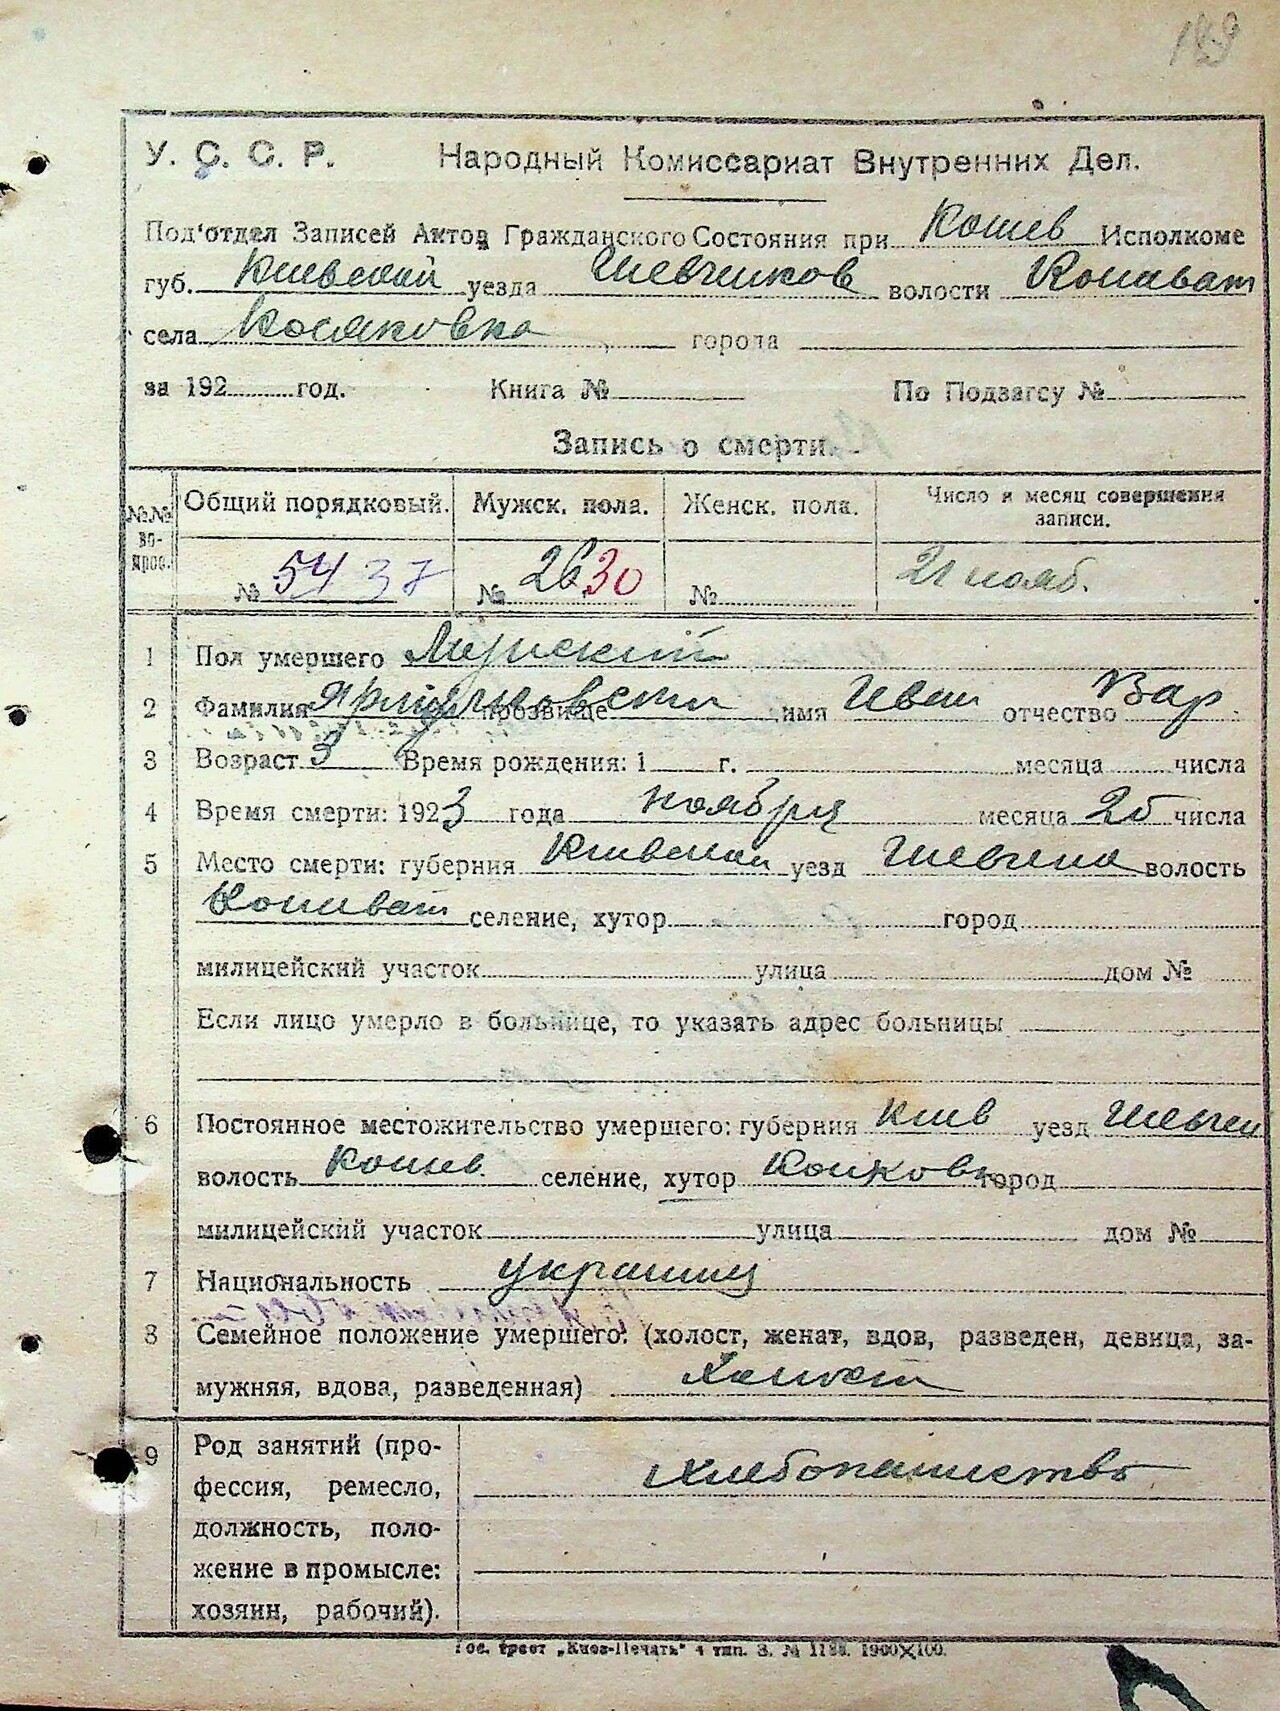 У. С. С. Р. Народный Комиссариат Внутренних Дел.
Под'отдел Записей Актов Гражданского Состояния при Кошев Исполкоме
губ. Киевской уезда Шевченков волости Конават
села Косяковка города
за 192 год. Книга № По Подзагсу №
Запись о смерти.
№№ во-прос. Общий порядковый. Мужск. пола. Женск. пола. Число и месяц совершения записи.
№ 54 37 № 26 30 № 21 нояб.
1 Пол умершего Мужской
2 Фамилия прозвище имя Иван отчество Вар
3 Возраст 3 Время рождения: 1 г. месяца числа
4 Время смерти: 1923 года ноября месяца 20 числа
5 Место смерти: губерния Киевская уезд Шевченк волость
Конават селение, хутор город
милицейский участок улица дом №
Если лицо умерло в больнице, то указать адрес больницы
6 Постоянное местожительство умершего: губерния Киев уезд Шевчен
волость Кошев. селение, хутор город
милицейский участок улица дом №
7 Национальность украинц
8 Семейное положение умершего: (холост, женат, вдов, разведен, девица, за-
мужняя, вдова, разведенная) Холост
9 Род занятий (про-
фессия, ремесло, Хлебопашество
должность, поло-
жение в промысле:
хозяин, рабочий).
Гос. трест „Киев-Печать" 4 тип. З. № 1100×100.